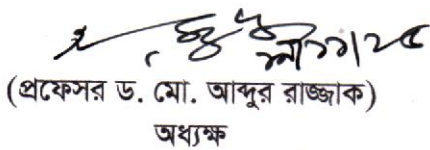 (প্রফেসর ড. মো. আব্দুর রাজ্জাক)
অধ্যক্ষ